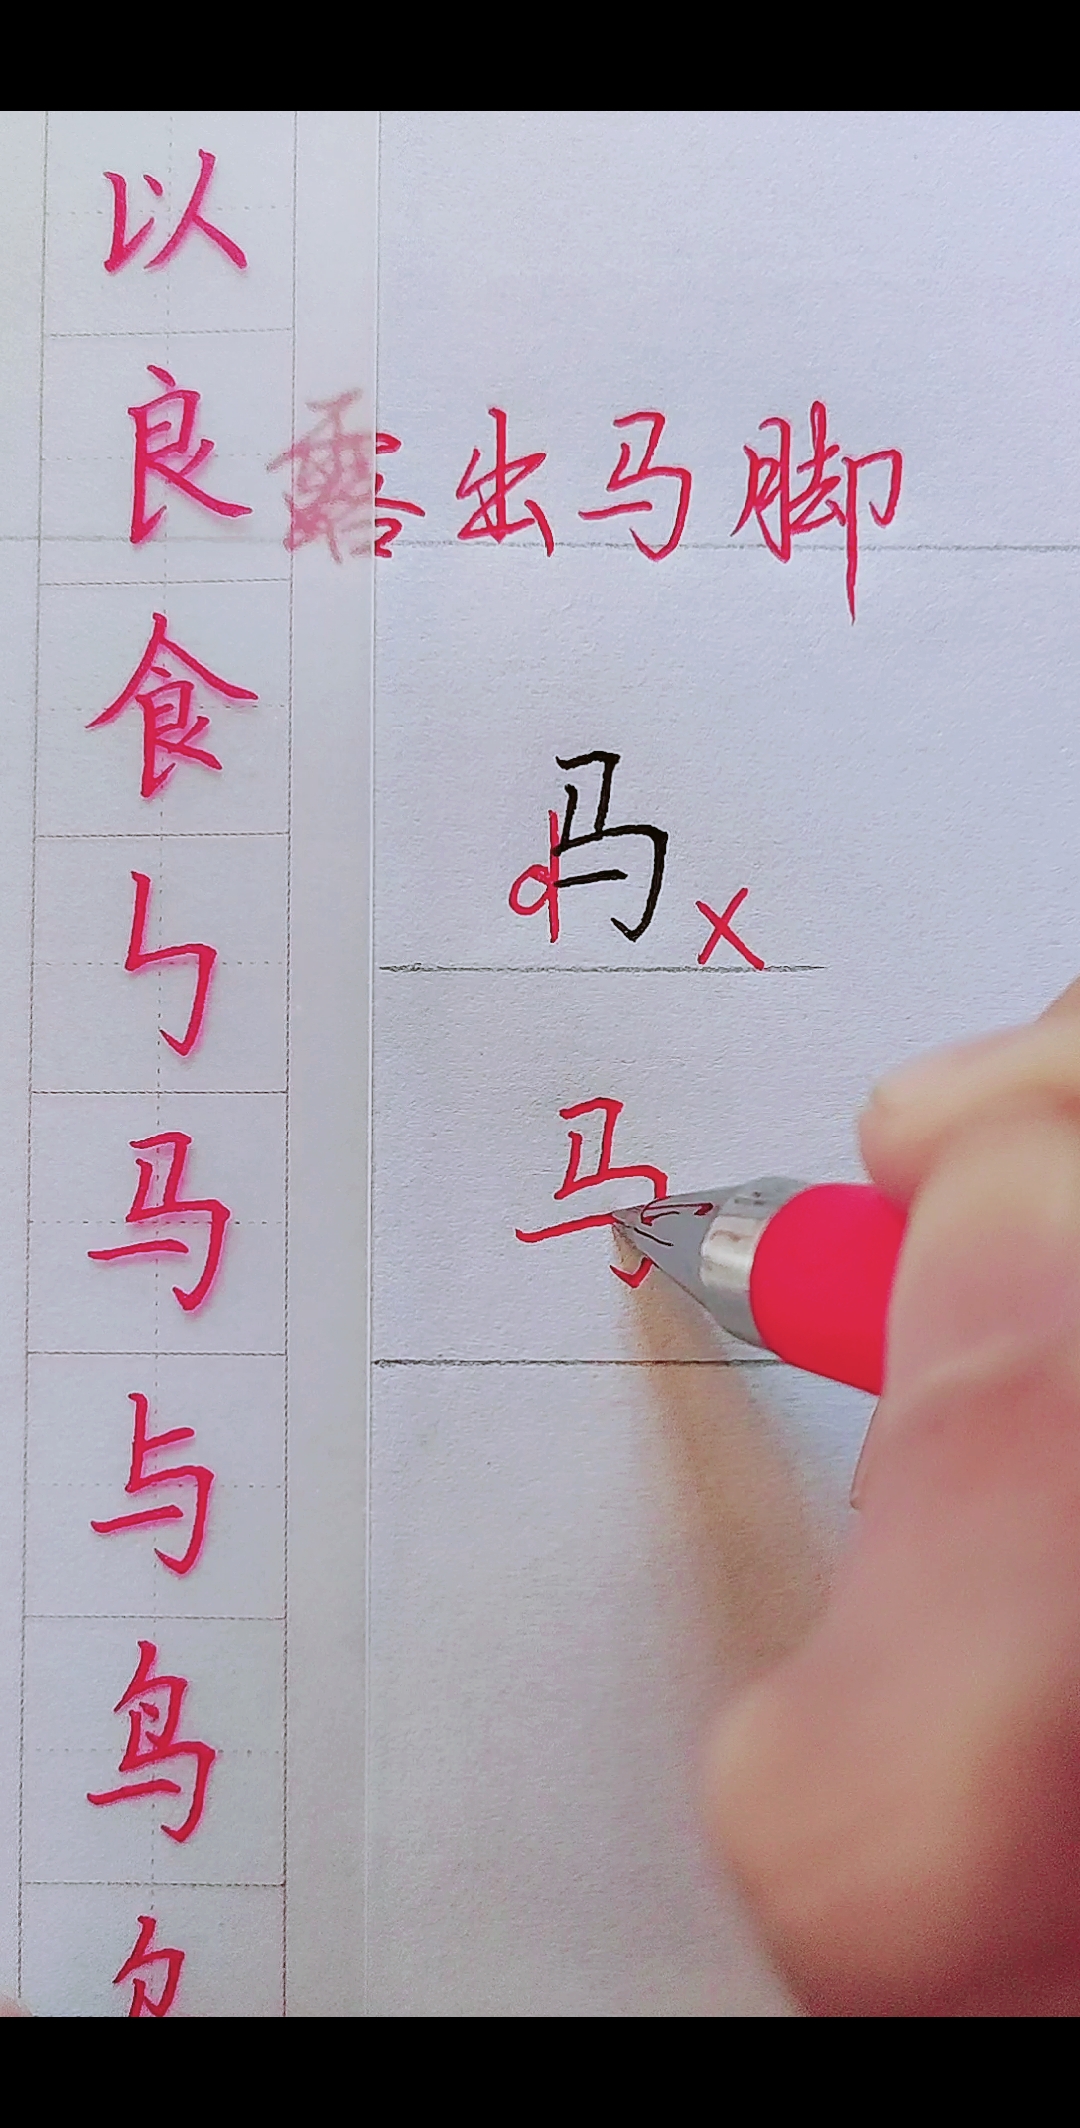 以
良
食
㇉
马
与
鸟
露出马脚
马
x
马